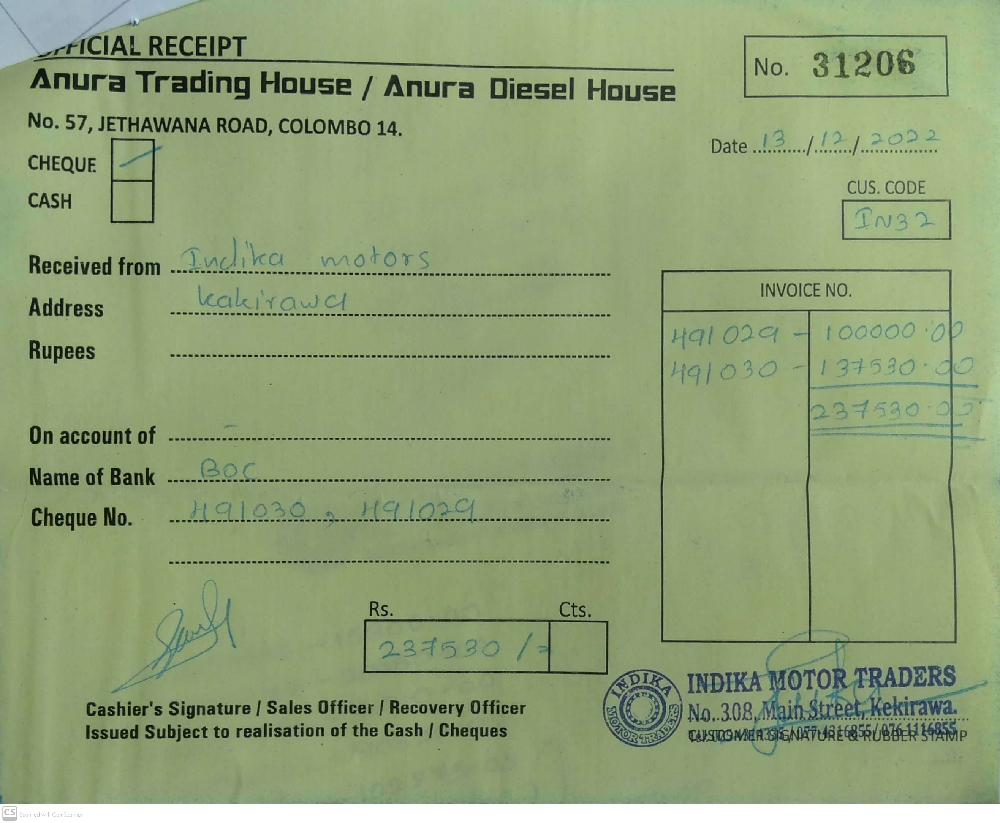 OFFICIAL RECEIPT
Anura Trading House / Anura Diesel House
No. 57, JETHAWANA ROAD, COLOMBO 14.
No. 31206
Date 13/12/2022
CHEQUE
CASH
CUS. CODE
IN32
Received from Indika motors
Address kakirawa
Rupees
On account of -
Name of Bank BOC
Cheque No. 491030, 491029
INVOICE NO.
491029 - 100000.00
491030 - 137530.00
237530.00
Rs. Cts.
237530/=
Cashier's Signature / Sales Officer / Recovery Officer
Issued Subject to realisation of the Cash / Cheques
INDIKA MOTOR TRADERS
INDIKA MOTOR TRADERS
No. 308, Main Street, Kekirawa.
CUSTOMER SIGNATURE & RUBBER STAMP
CS